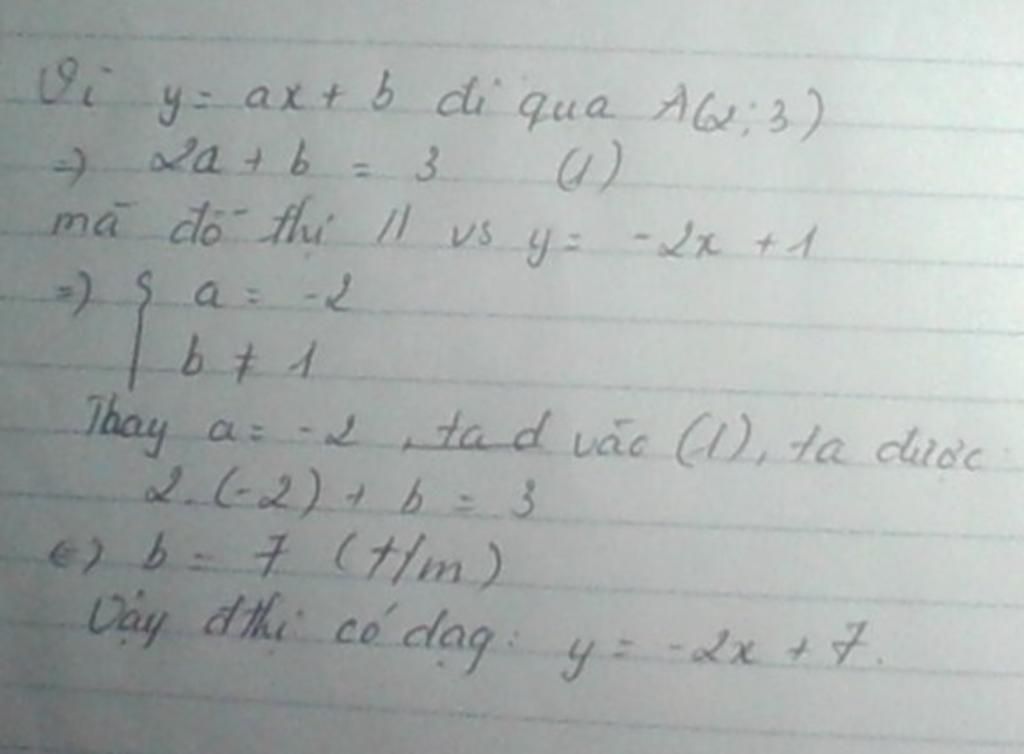 Vì y = ax + b đi qua A(2;3)
=) 2a + b = 3 (1)
mà đồ thị // vs y = -2x + 1
=) { a = -2
b ≠ 1
Thay a = -2, ta đ vào (1), ta được
2.(-2) + b = 3
(=) b = 7 (t/m)
Vậy đthị có dạg: y = -2x + 7.